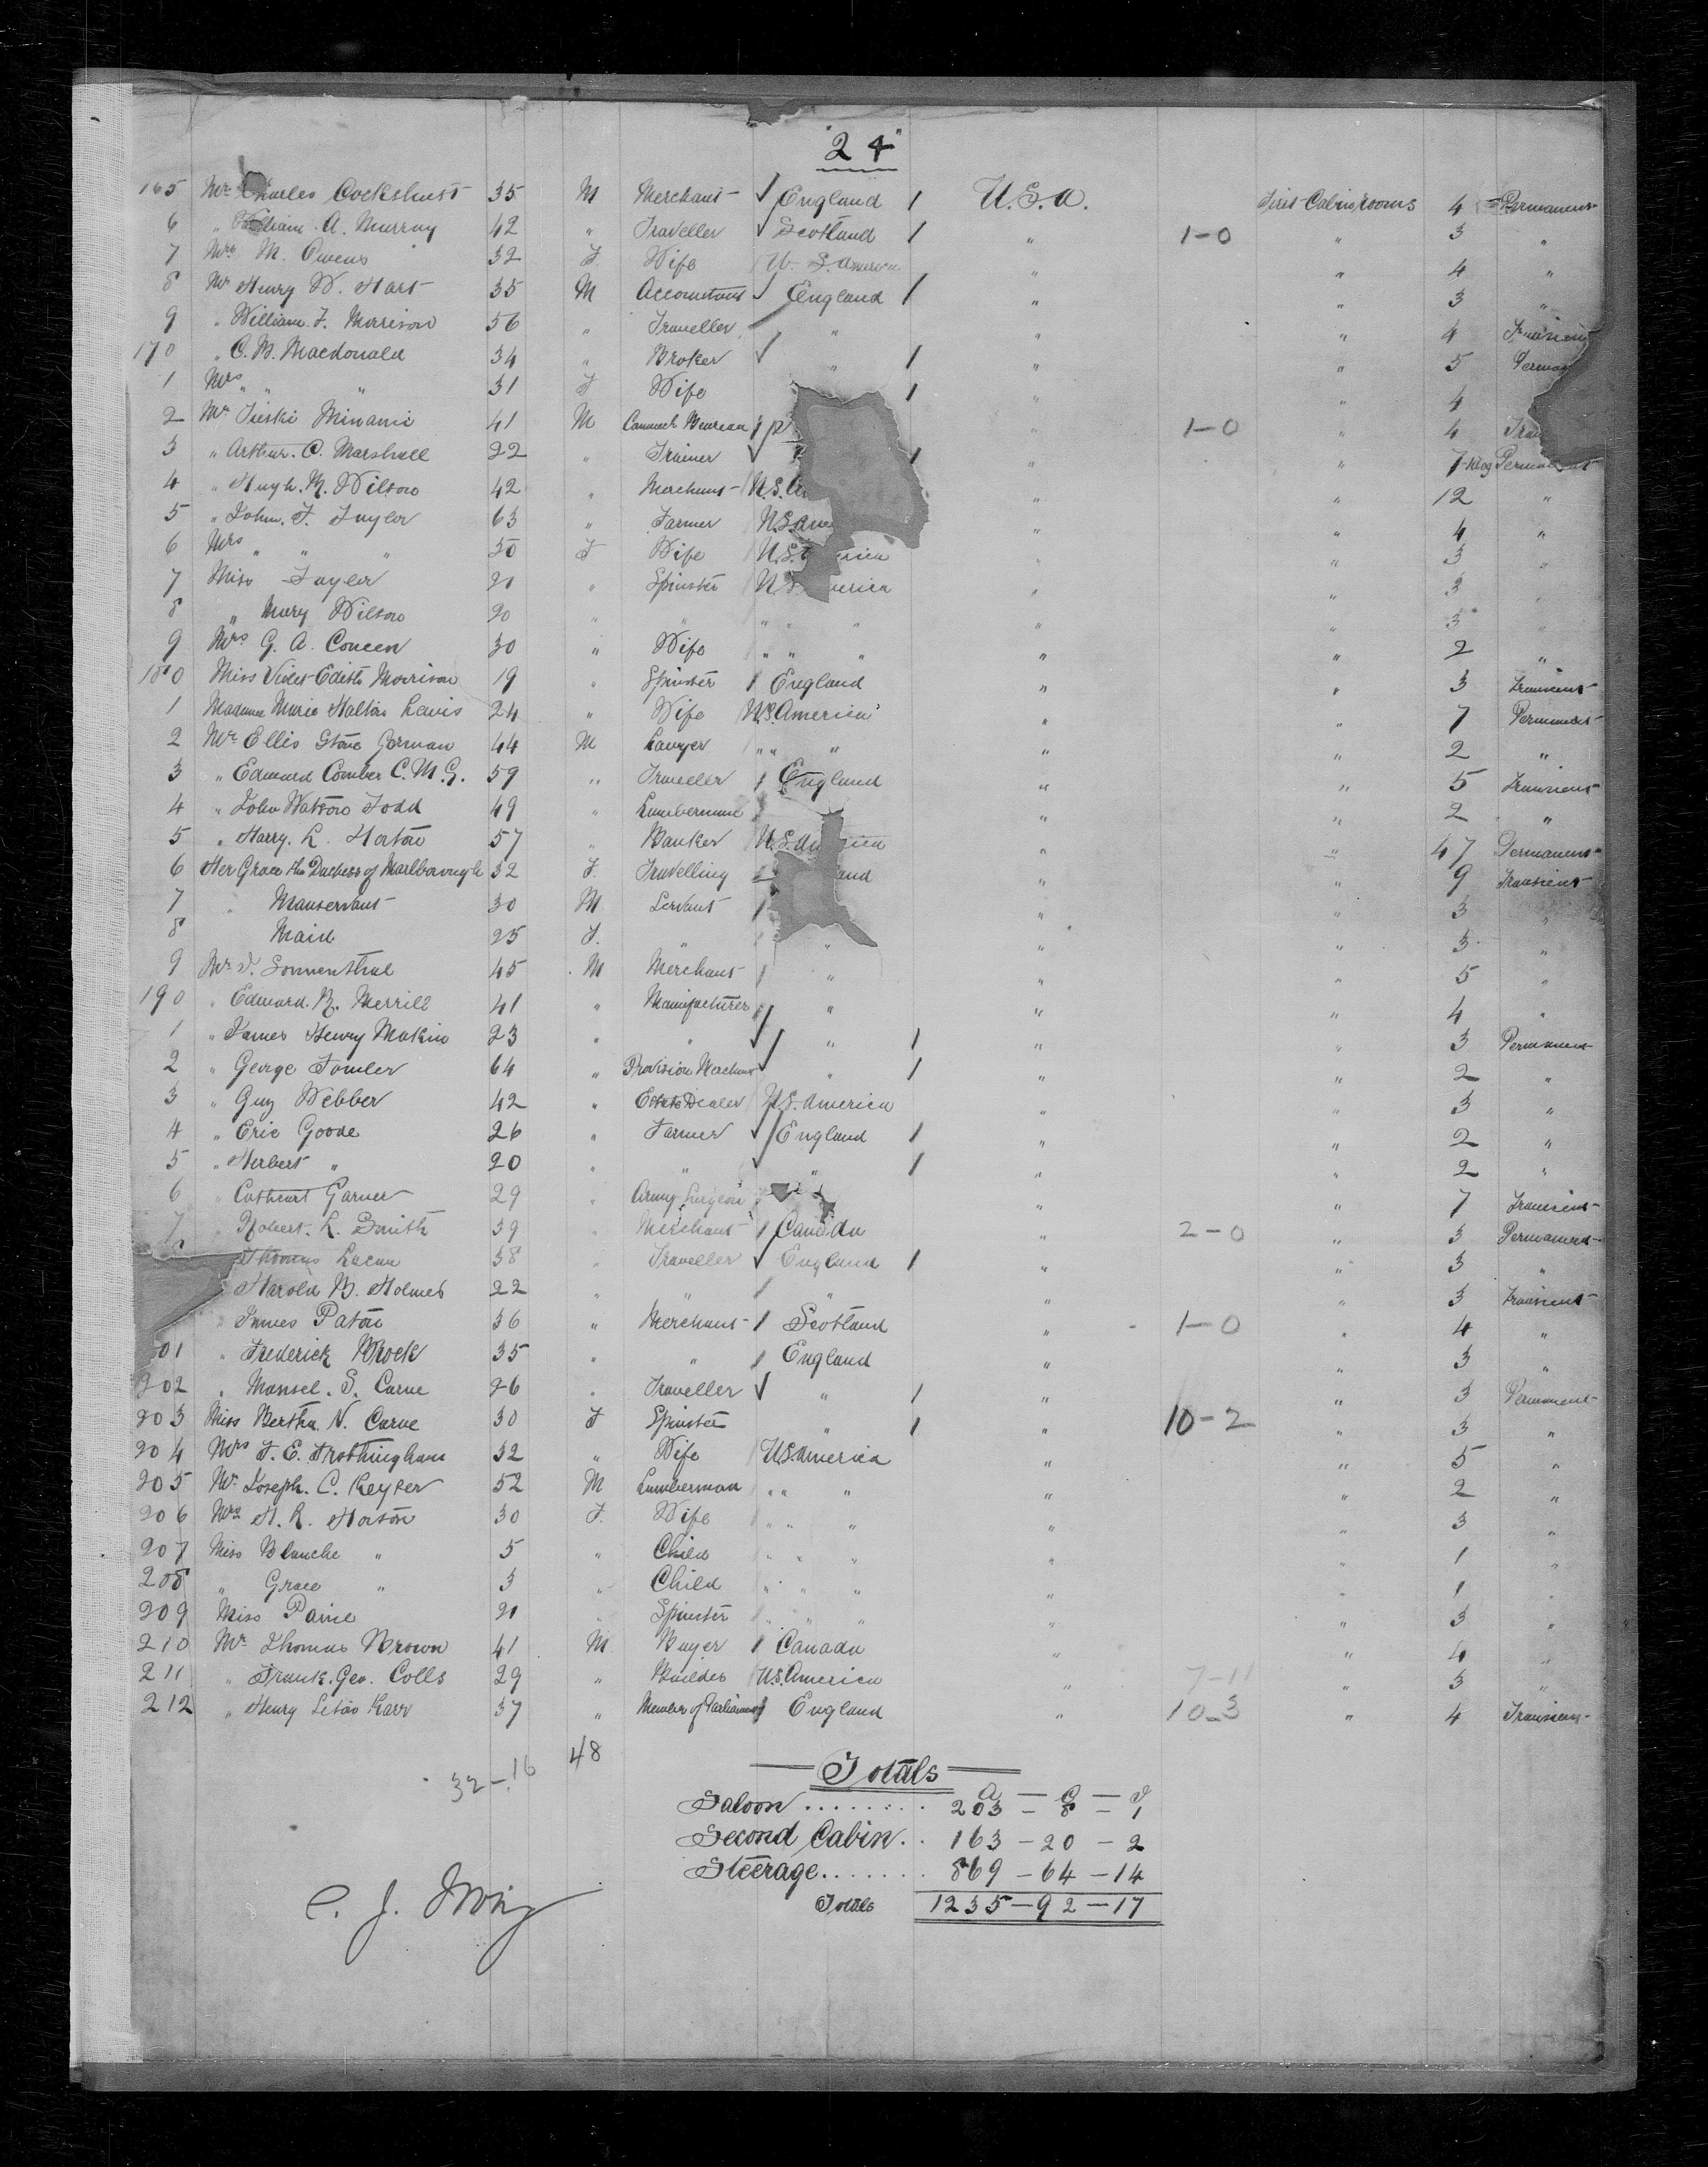 "24"
165 Mr Charles Cockshutt 35 M Merchant England 1 U.S.A. First Cabin, rooms 4 Permanent
6 " William A. Murray 42 " Traveller Scotland 1 " 1-0 " 3 "
7 Mrs M. Owens 32 F Wife U.S. America " " 4 "
8 Mr Henry W. Hart 35 M Accountant England 1 " " 3 "
9 " William F. Morrison 56 " Traveller " " " 4 Transient
170 " C.B. Macdonald 34 " Broker " 1 " " 5 Perman
1 Mrs " " 31 F Wife 1 " " 4
2 Mr Minami 41 M " 1-0 " 4 Tran
3 " Arthur. C. Marshall 22 " Trainer 1 " " 7 Permanent
4 " Hugh. R. Wilson 42 " Merchant U.S. " " 12 "
5 " John. F. Tayler 63 " Farmer U.S. Ame " " 4 "
6 Mrs " " 50 F Wife U.S. rica " " 3 "
7 Miss Tayler 20 " Spinster U.S. merica " " 3 "
8 " Mary Wilson 20 " " " " " " " 3 "
9 Mrs G. A. Coneen 30 " Wife " " " " " 2 "
180 Miss Violet Edith Morrison 19 " Spinster England " " 3 Transient
1 Madame Marie Halton Lewis 24 " Wife U.S. America " " 7 Permanent
2 Mr Ellis Stone Gorman 44 M Lawyer " " " " " 2 "
3 " Edward Comber C.M.G. 59 " Traveller England " " 5 Transient
4 " John Watson Todd 49 " Lumberman " " 2 "
5 " Harry. L. Horton 57 " Banker U.S. Am rica " " 47 Permanent
6 Her Grace the Duchess of Marlborough 32 F. Travelling and " " 9 Transient
7 " Manservant 30 M Servant " " 3 "
8 Maid 25 F. " " " " 3 "
9 Mr F. Sonnenthal 45 M Merchant " " " 5 "
190 " Edward. R. Merrill 41 " Manufacturer " " " 4 "
1 " James Henry Makin 23 " " " 1 " " 3 Permanent
2 " George Fowler 64 " Provision Merchant " 1 " " 2 "
3 " Guy Webber 42 " Estate Dealer U.S. America " " 3 "
4 " Eric Goode 26 " Farmer England 1 " " 2 "
5 " Herbert " 20 " " " 1 " " 2 "
6 " Cathcart Garner 29 " Army Surgeon " " 7 Transient
7 " Robert. L. Smith 39 " Merchant Canada " 2-0 " 3 Permanent
Thomas Lucan 38 " Traveller England 1 " " 3 "
Harold B. Holmes 22 " " " " " 3 Transient
" James Paton 36 " Merchant Scotland " 1-0 " 4 "
01 " Frederick Brock 35 " " England " " 3 "
202 " Mansel. S. Carne 26 " Traveller " 1 " " 3 Permanent
203 Miss Bertha N. Carne 30 F Spinster " 1 " 10-2 " 3 "
204 Mrs F. E. Frothingham 32 " Wife U.S. America " " 5 "
205 Mr Joseph. C. Keyser 52 M Lumberman " " " " " 2 "
206 Mrs H. L. Horton 30 F. Wife " " " " " 3 "
207 Miss Blanche " 5 " Child " " " " " 1 "
208 " Grace " 3 " Child " " " " " 1 "
209 Miss Paine 20 " Spinster " " " " " 3 "
210 Mr Thomas Brown 41 M Buyer Canada " " 4 "
211 " Frank. Geo. Colls 29 " Builder U.S. America " 7-11 " 3 "
212 " Henry Seton Karr 37 " Member of Parliament England " 10-3 " 4 Transient
32-16 48
Totals
A - C - I
Saloon ........ 203 - 8 - 1
Second Cabin .. 163 - 20 - 2
Steerage ....... 869 - 64 - 14
Totals 1235 - 92 - 17